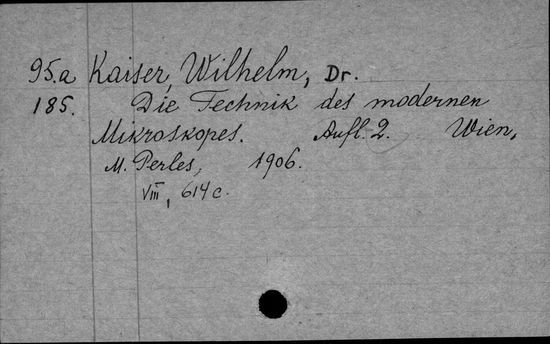 95.a Kaiser, Wilhelm, Dr.
185. Die Technik des modernen
Mikroskopes. Aufl. 2. Wien,
M. Perles, 1906.
VIII, 614 c.